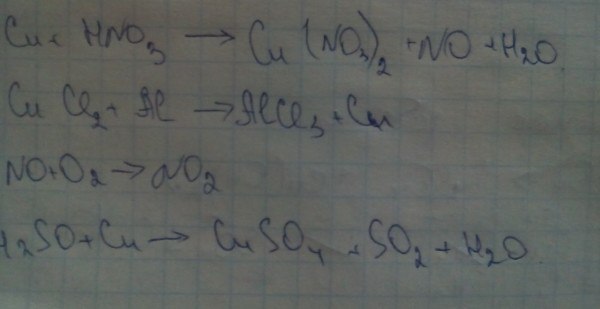 Cu + HNO₃ → Cu(NO₃)₂ + NO + H₂O
CuCl₂ + Al → AlCl₃ + Cu
NO + O₂ → NO₂
H₂SO + Cu → CuSO₄ + SO₂ + H₂O